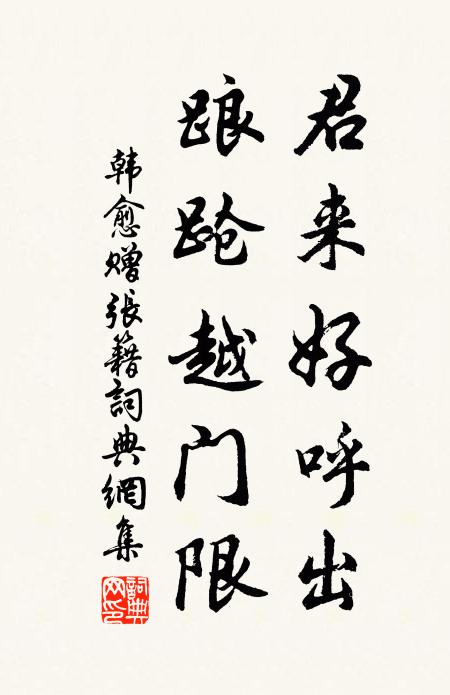 君来好呼出
踉跄越门限
韩愈赠張籍詞典網集
詞典網印